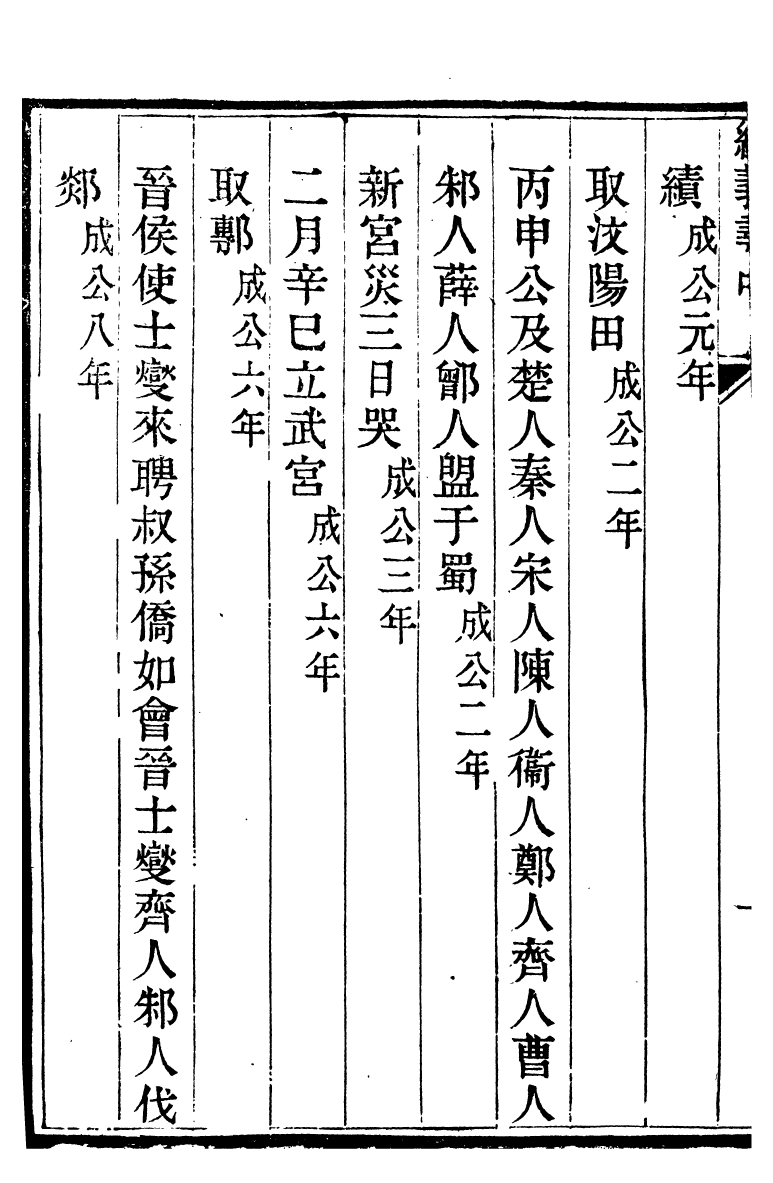 績成公元年
取汶陽田成公二年
丙申公及楚人秦人宋人陳人衞人鄭人齊人曹人
邾人薛人鄫人盟于蜀成公二年
新宮災三日哭成公三年
二月辛巳立武宮成公六年
取鄟成公六年
晉侯使士燮來聘叔孫僑如會晉士燮齊人邾人伐
郯成公八年